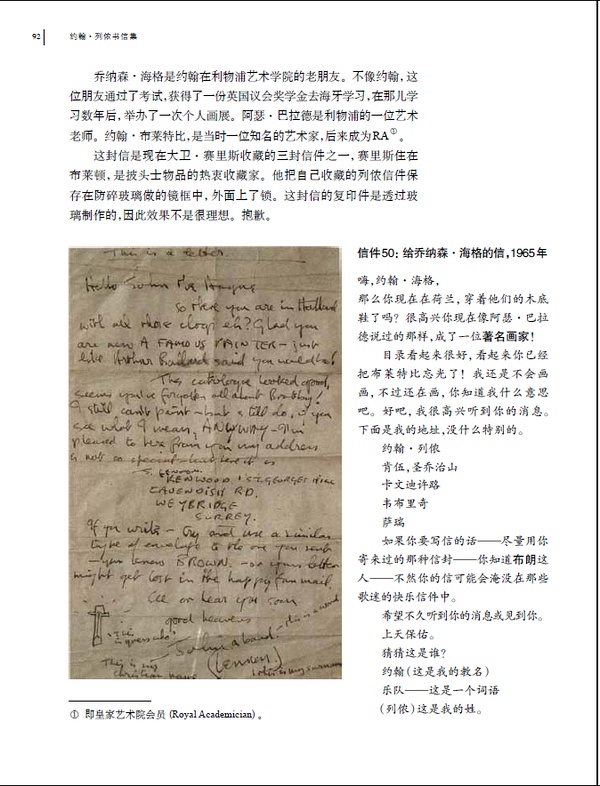 92
约翰·列侬书信集
乔纳森·海格是约翰在利物浦艺术学院的老朋友。不像约翰，这
位朋友通过了考试，获得了一份英国议会奖学金去海牙学习，在那儿学
习数年后，举办了一次个人画展。阿瑟·巴拉德是利物浦的一位艺术
老师。约翰·布莱特比，是当时一位知名的艺术家，后来成为RA①。
这封信是现在大卫·赛里斯收藏的三封信件之一，赛里斯住在
布莱顿，是披头士物品的热衷收藏家。他把自己收藏的列侬信件保
存在防碎玻璃做的镜框中，外面上了锁。这封信的复印件是透过玻
璃制作的，因此效果不是很理想。抱歉。
This is a letter.
Hello John McHague
so there you are in Holland
with all those clogs eh? Glad you
are now A FAMOUS PAINTER – just
like Arthur Ballard said you would be!
The catalogue looked good,
seems you've forgotten all about Bratby!
I still can't paint – but still do, if you
see what I mean, ANYWAY – I'm
pleased to hear from you my address
is not so special – but here it is
J. LENNON.
KENWOOD, ST. GEORGES HILL
CAVENDISH RD.
WEYBRIDGE
SURREY.
If you write – try and use a similar
type of envelope to the one you sent
– you know BROWN – or your letter
might get lost in the happy fan mail
See or hear you soon
good heavens
This is my
christian name
(Lennon)
this is my surname
信件50：给乔纳森·海格的信，1965年
嗨，约翰·海格，
那么你现在在荷兰，穿着他们的木底
鞋了吗？很高兴你现在像阿瑟·巴拉
德说过的那样，成了一位著名画家！
目录看起来很好，看起来你已经
把布莱特比忘光了！我还是不会画
画，不过还在画，你知道我什么意思
吧。好吧，我很高兴听到你的消息。
下面是我的地址，没什么特别的。
约翰·列侬
肯伍，圣乔治山
卡文迪许路
韦布里奇
萨瑞
如果你要写信的话——尽量用你
寄来过的那种信封——你知道布朗这
人——不然你的信可能会淹没在那些
歌迷的快乐信件中。
希望不久听到你的消息或见到你。
上天保佑。
猜猜这是谁？
约翰（这是我的教名）
乐队——这是一个词语
（列侬）这是我的姓。
① 即皇家艺术院会员 (Royal Academician) 。